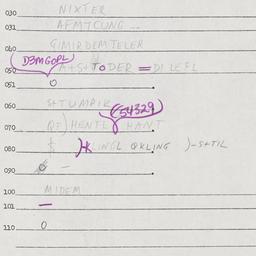 030 NIXTER
031 AFMTCUNG
040 GIMIRDEMTELER
D3MGOPL
050 A+S+TODER = DILEFL
051 0
060 S+TUMPIK (54329)
070 QF) HENTL HANT
080 LINGL QKLING )-S+TIL
090 -
100 MIDEM
101 -
110 0